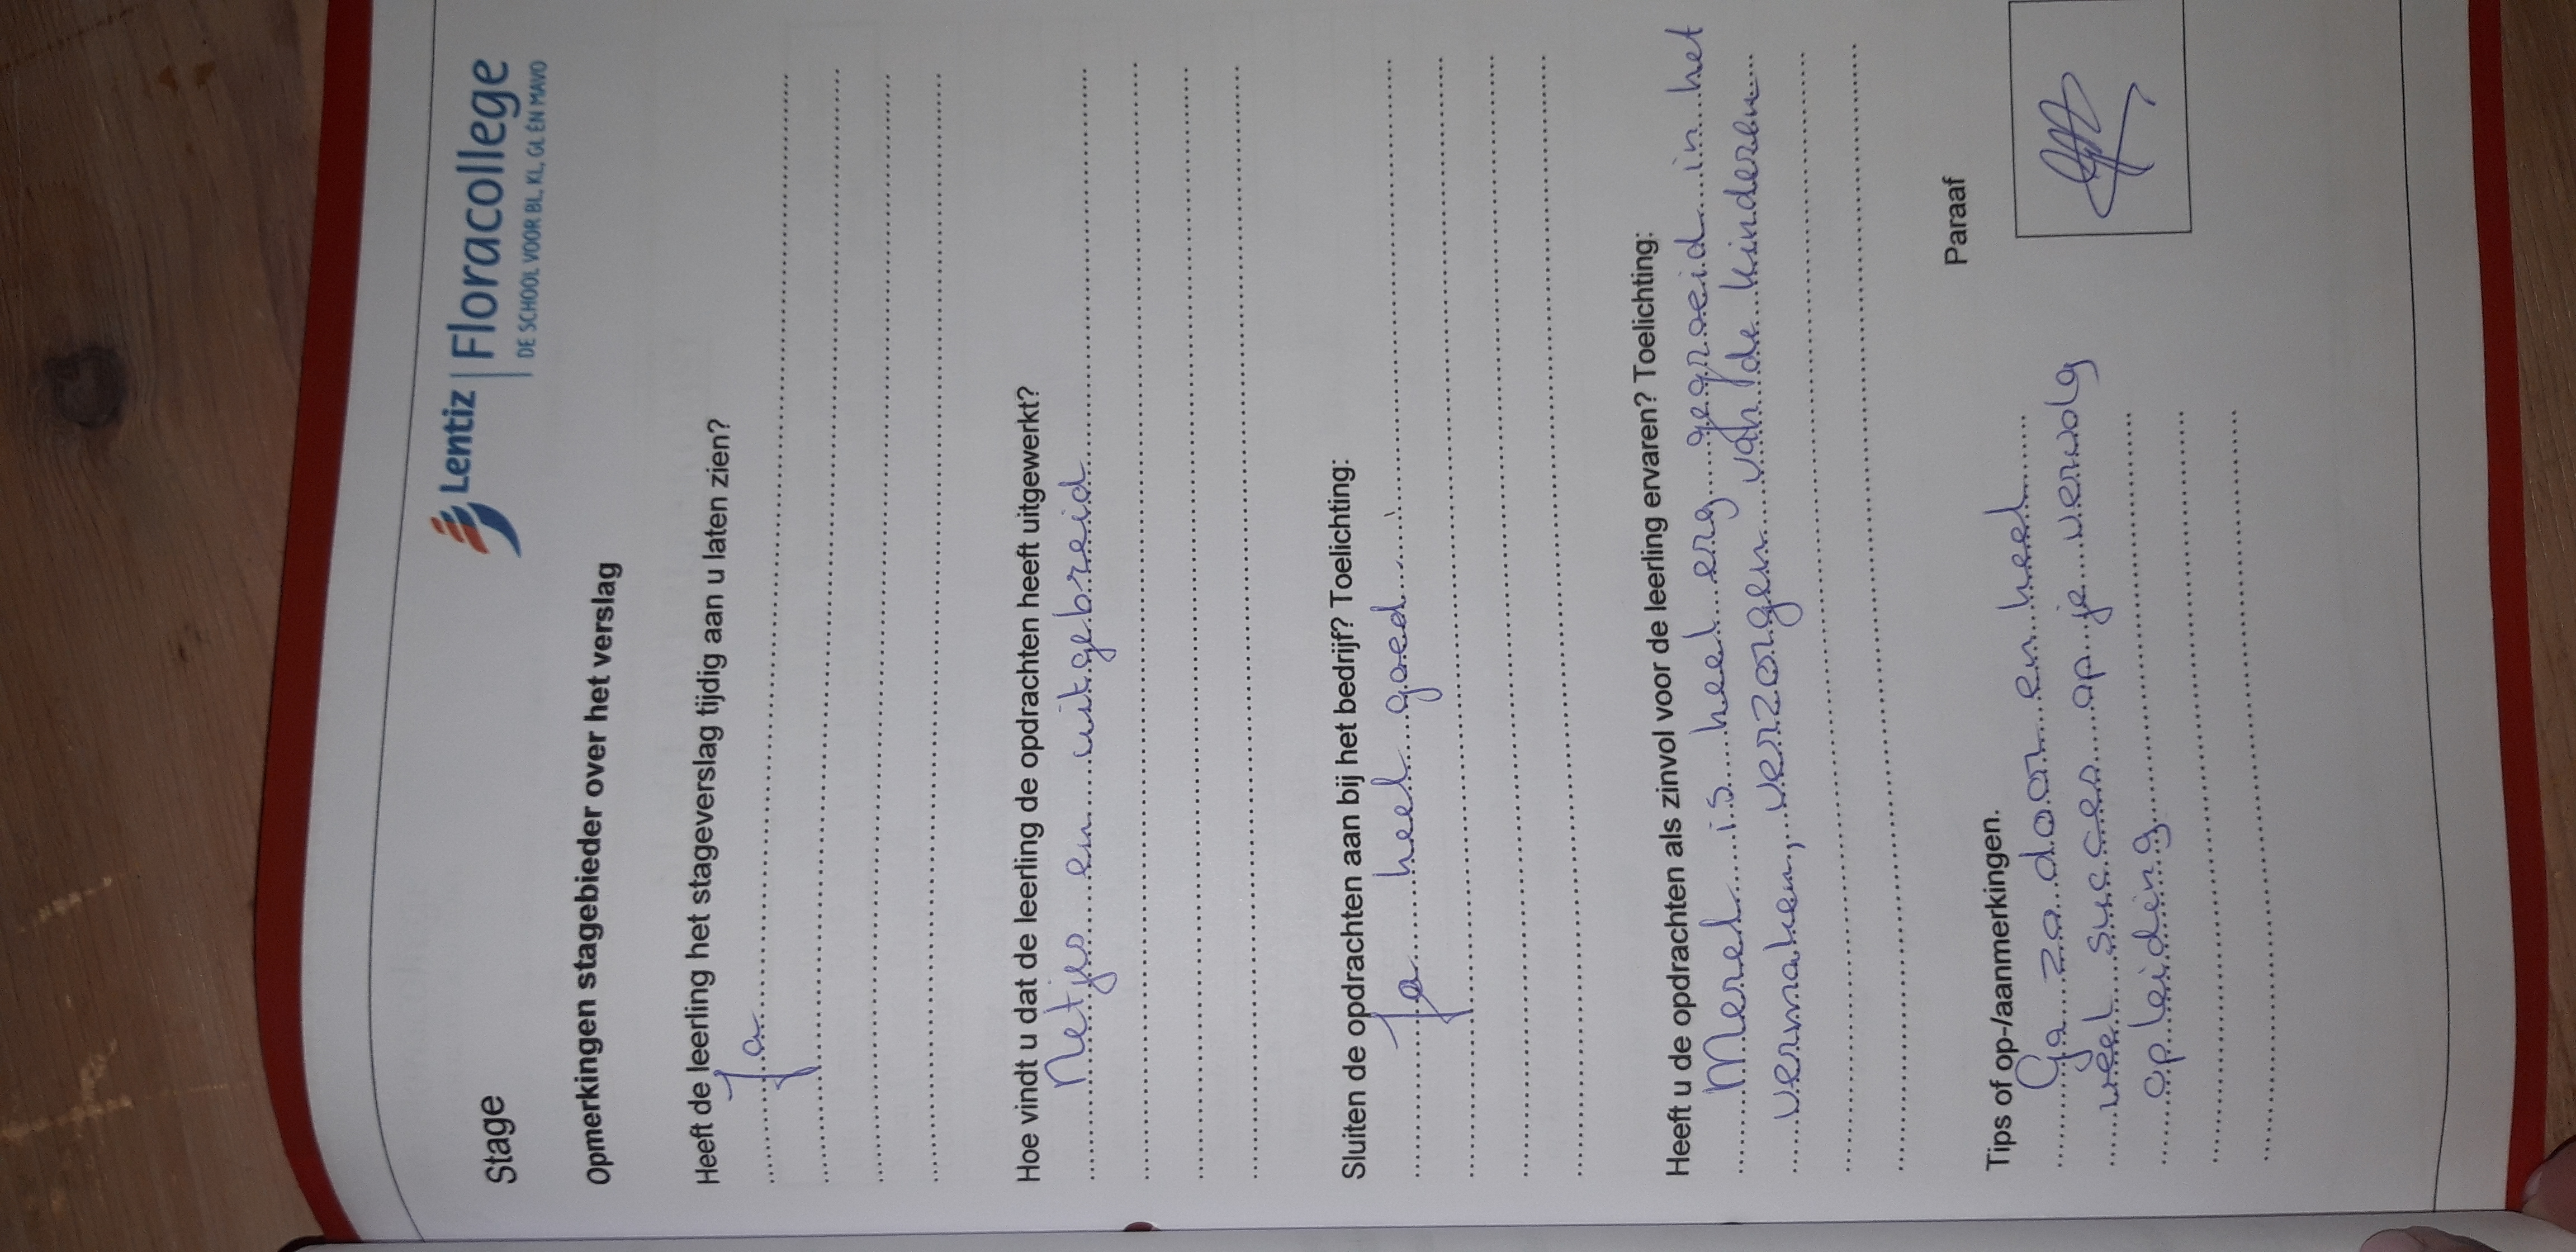 Lentiz | Floracollege
DE SCHOOL VOOR BL, KL, GL EN MAVO
Stage
Opmerkingen stagebieder over het verslag
Heeft de leerling het stageverslag tijdig aan u laten zien?
Ja
Hoe vindt u dat de leerling de opdrachten heeft uitgewerkt?
Netjes en uitgebreid
Sluiten de opdrachten aan bij het bedrijf? Toelichting:
Ja heel goed
Heeft u de opdrachten als zinvol voor de leerling ervaren? Toelichting:
Merel is heel erg gegroeid in het
vermaken, verzorgen van de kinderen
Paraaf
Tips of op-/aanmerkingen.
Ga zo door en heel
veel succes op je vervolg
opleiding